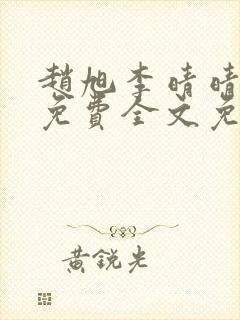 趙旭李晴晴
免費全文免
黃銳光